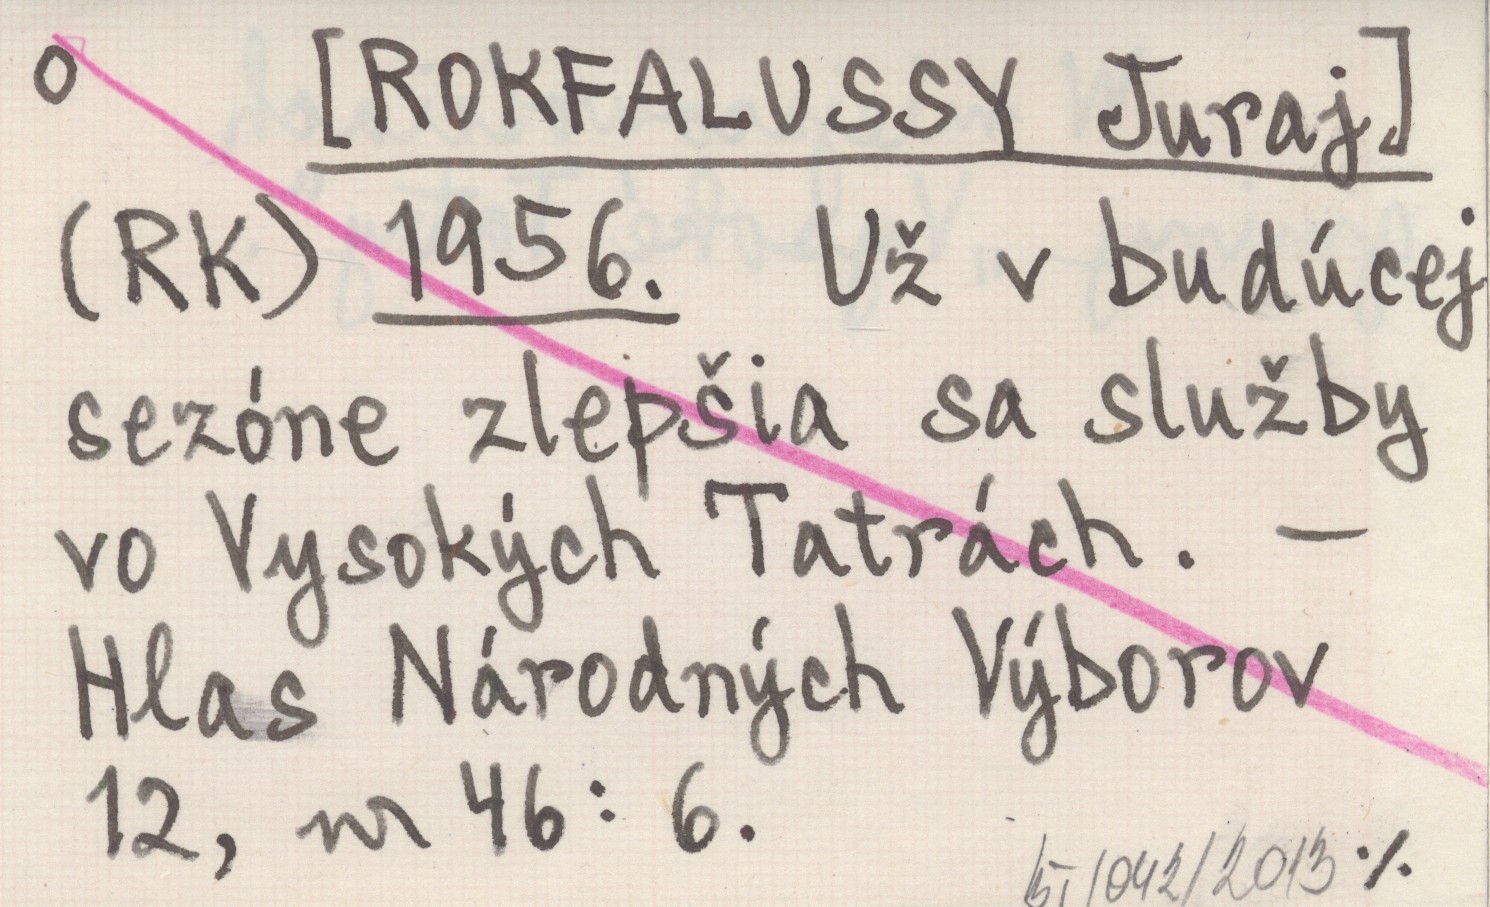 o [ROKFALUSSY Juraj]
(RK) 1956. Už v budúcej
sezóne zlepšia sa služby
vo Vysokých Tatrách. —
Hlas Národných Výborov
12, nr 46: 6.
1042/2013 ·/.